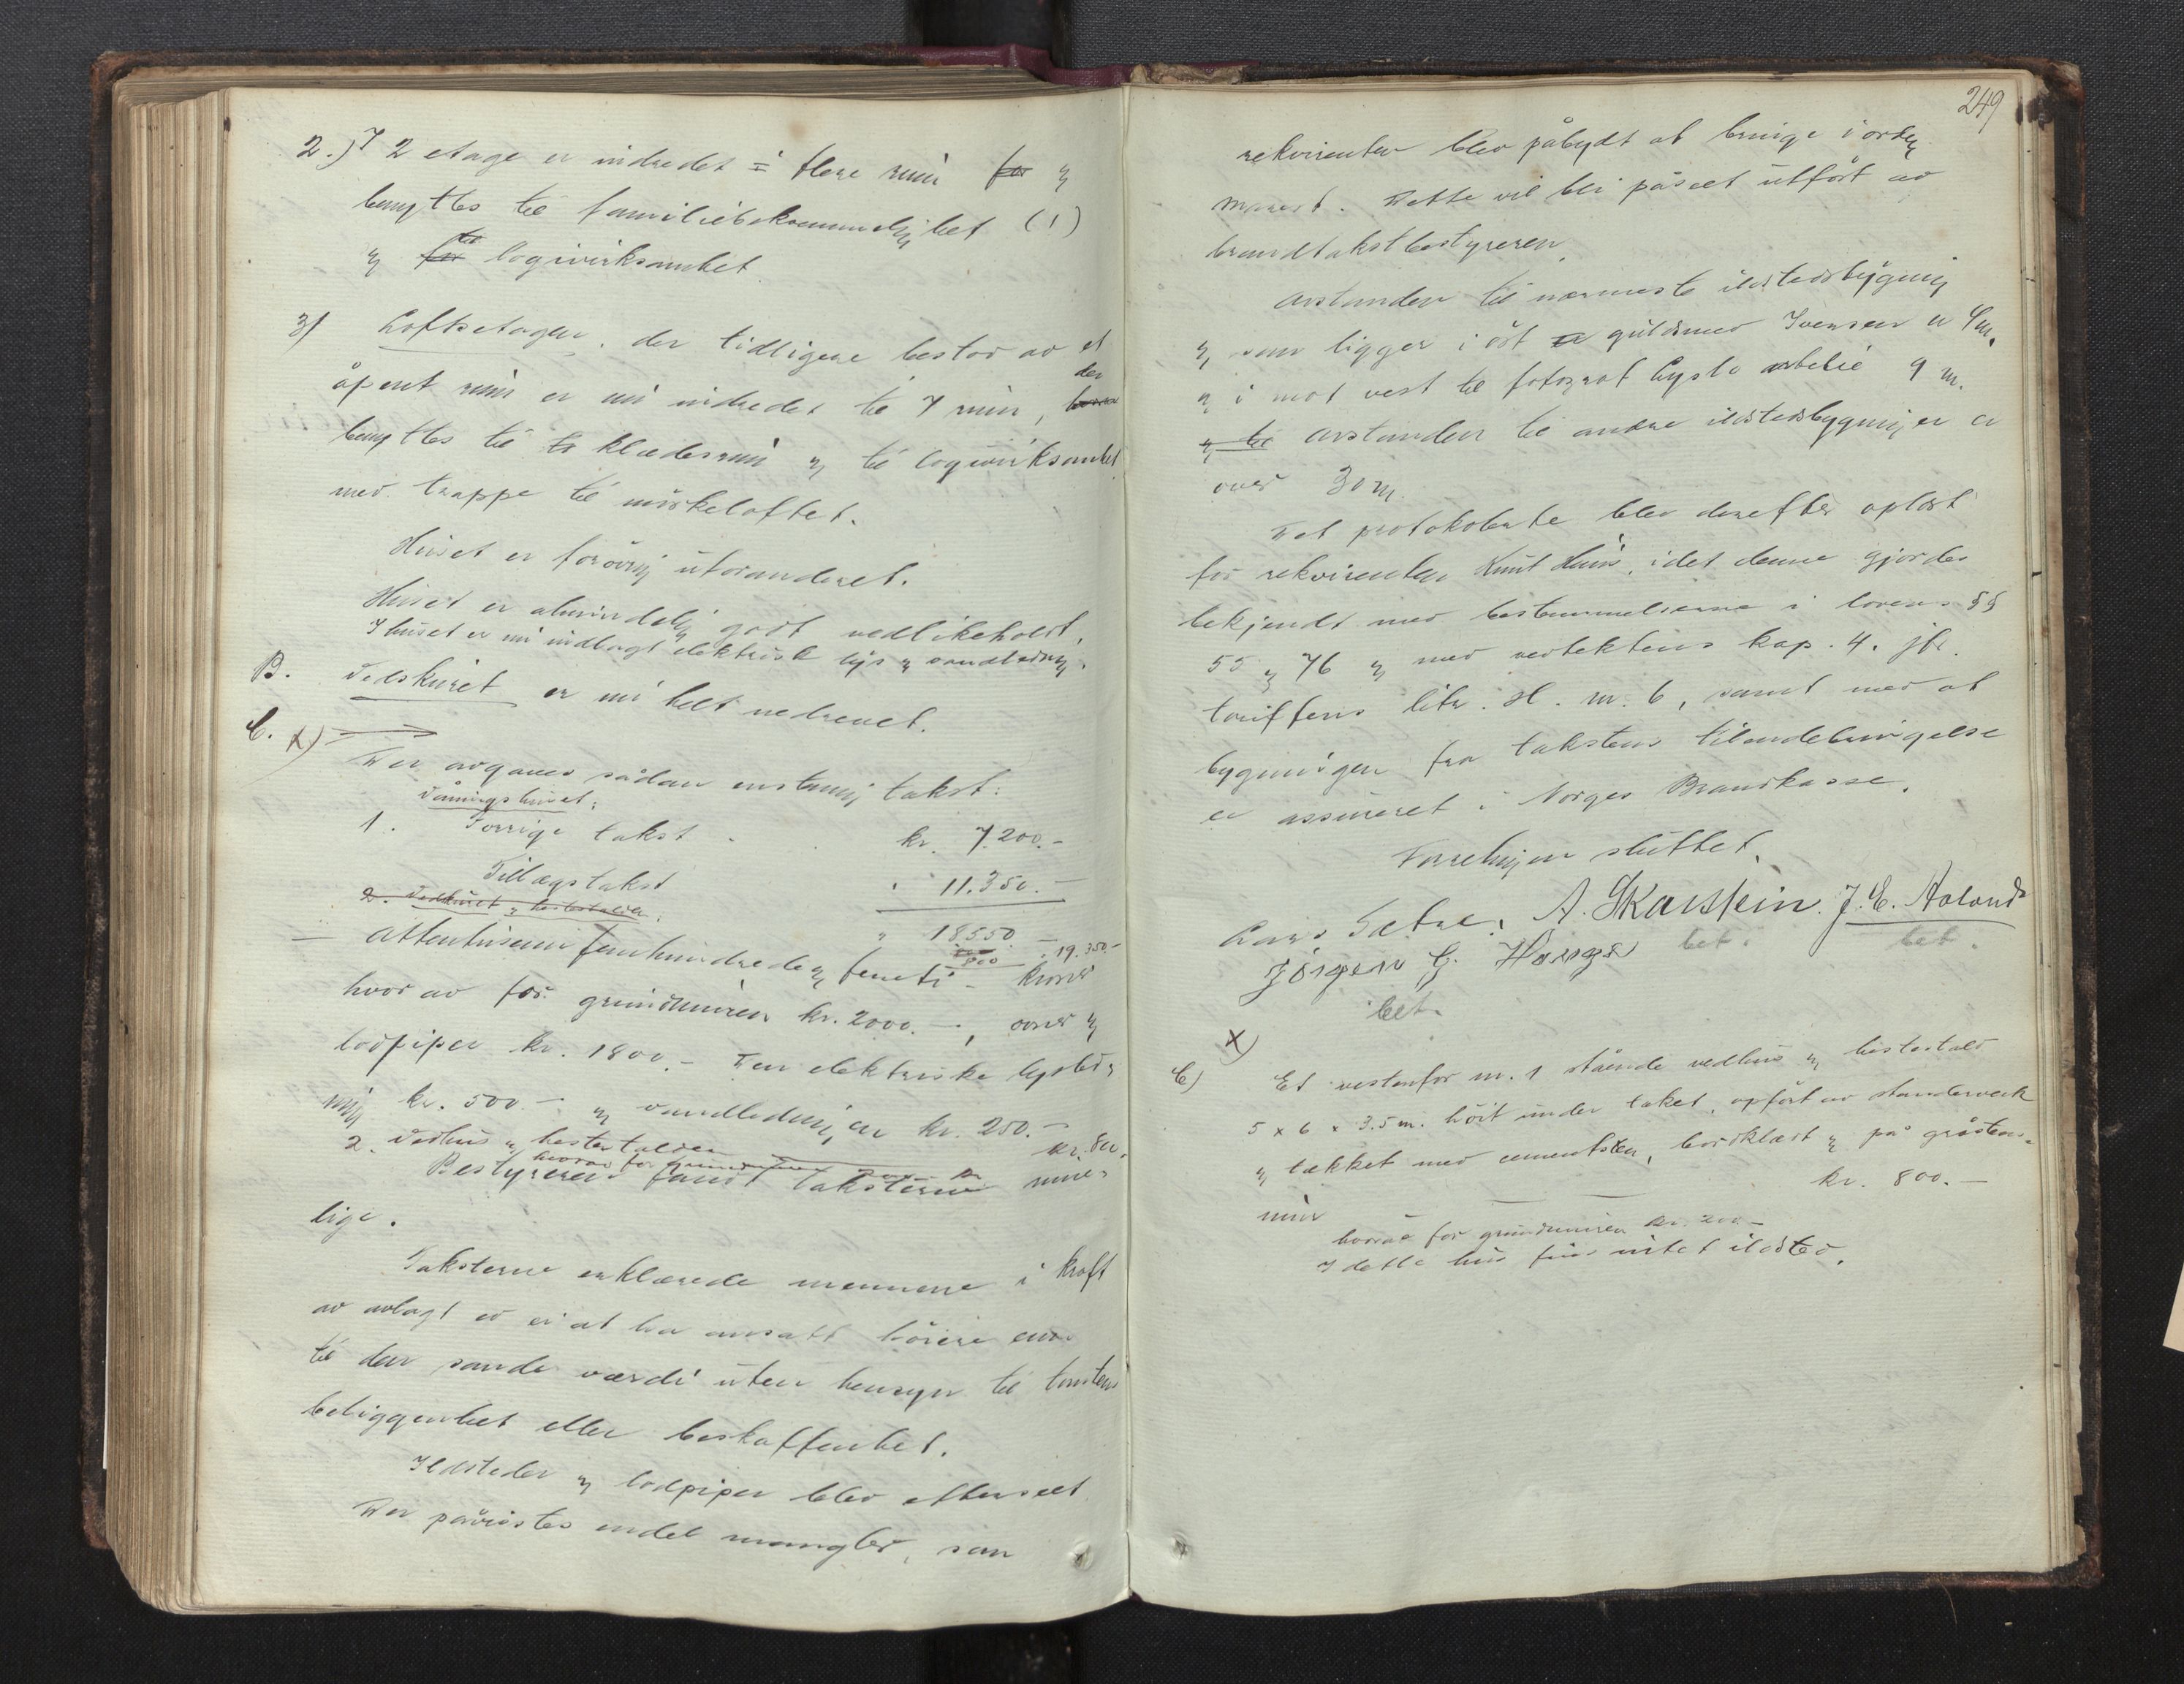 2.) I 2 etage er indredet i flere rum for og
benyttes til familiebekvemmelighet (1)
og for til logivirksomhet
3) Loftsetagen, der tidligere bestod av et
åpent rum er nu indredet til 7 rum, der
benyttes til klædesrum og til logivirksomhet
med trappe til mørkeloftet.
Huset er forøvrig uforandret.
Huset er almindelig godt vedlikeholdt.
I huset er nu indlagt elektrisk lys og vandledning.
B. Vedskuret er nu helt nedrevet.
C. x)
Der avgaves sådan enstemmig takst:
Våningshuset:
1. Forrige takst kr. 7.200.-
Tillægstakst " 11.350.-
2. Vedhuset og hestestalden:
" 18550.-
800 19.350-
Attentusenfemhundredeogfemti - kroner
hvorav for grundmuren kr. 2000.-, ovner og
lodpiper kr. 1800.- Den elektriske lysled-
ning kr. 500.- og vandledningen kr. 250.-
2. Vedhus og hestestalden kr. 800.
hvorav for grundmuren
Bestyreren fandt taksterne rime-
lige.
Taksterne erklærede mennene i kraft
av avlagt ed ei at ha ansatt høiere end
til den sande værdi uten hensyn til tomtens
beliggenhet eller beskaffenhet.
Ildsteder og lodpiper blev efterseet
Der påvistes endel mangler, som
249
rekvirenten blev påbydt at bringe i orden
snarest. Dette vil bli påseet utført av
brandtakstbestyreren.
Avstanden til nærmeste ildstedsbygning
og som ligger i øst er guldsmed Ivensen er 4 m.
og i mot vest til fotograf Lysto atelie 9 m.
og til avstanden til andre ildstedsbygninger er
over 30 m.
Det protokolerte blev derefter oplæst
for rekvirenten Knut Huus, idet denne gjordes
bekjendt med bestemmelserne i lovens §§
55 og 76 og med vedtektens kap. 4. jfr.
tariffens litr. H. nr. 6, samt med at
bygningen fra takstens tilendebringelse
er assureret i Norges Brandkasse.
Forretningen sluttet.
Lars Sætre. A. Skarstein. J. E. Aaland
Jørgen G. Hauge bet. bet.
bet.
x)
C) Et vestenfor nr. 1 stående vedhus og hestestald
5 x 6 x 3.5 m. høit under taket, opført av standerverk
og tækket med cementsten, bordklædt og på gråstens-
mur kr. 800.-
hvorav for grundmuren kr. 200.-
I dette hus fins intet ildsted.